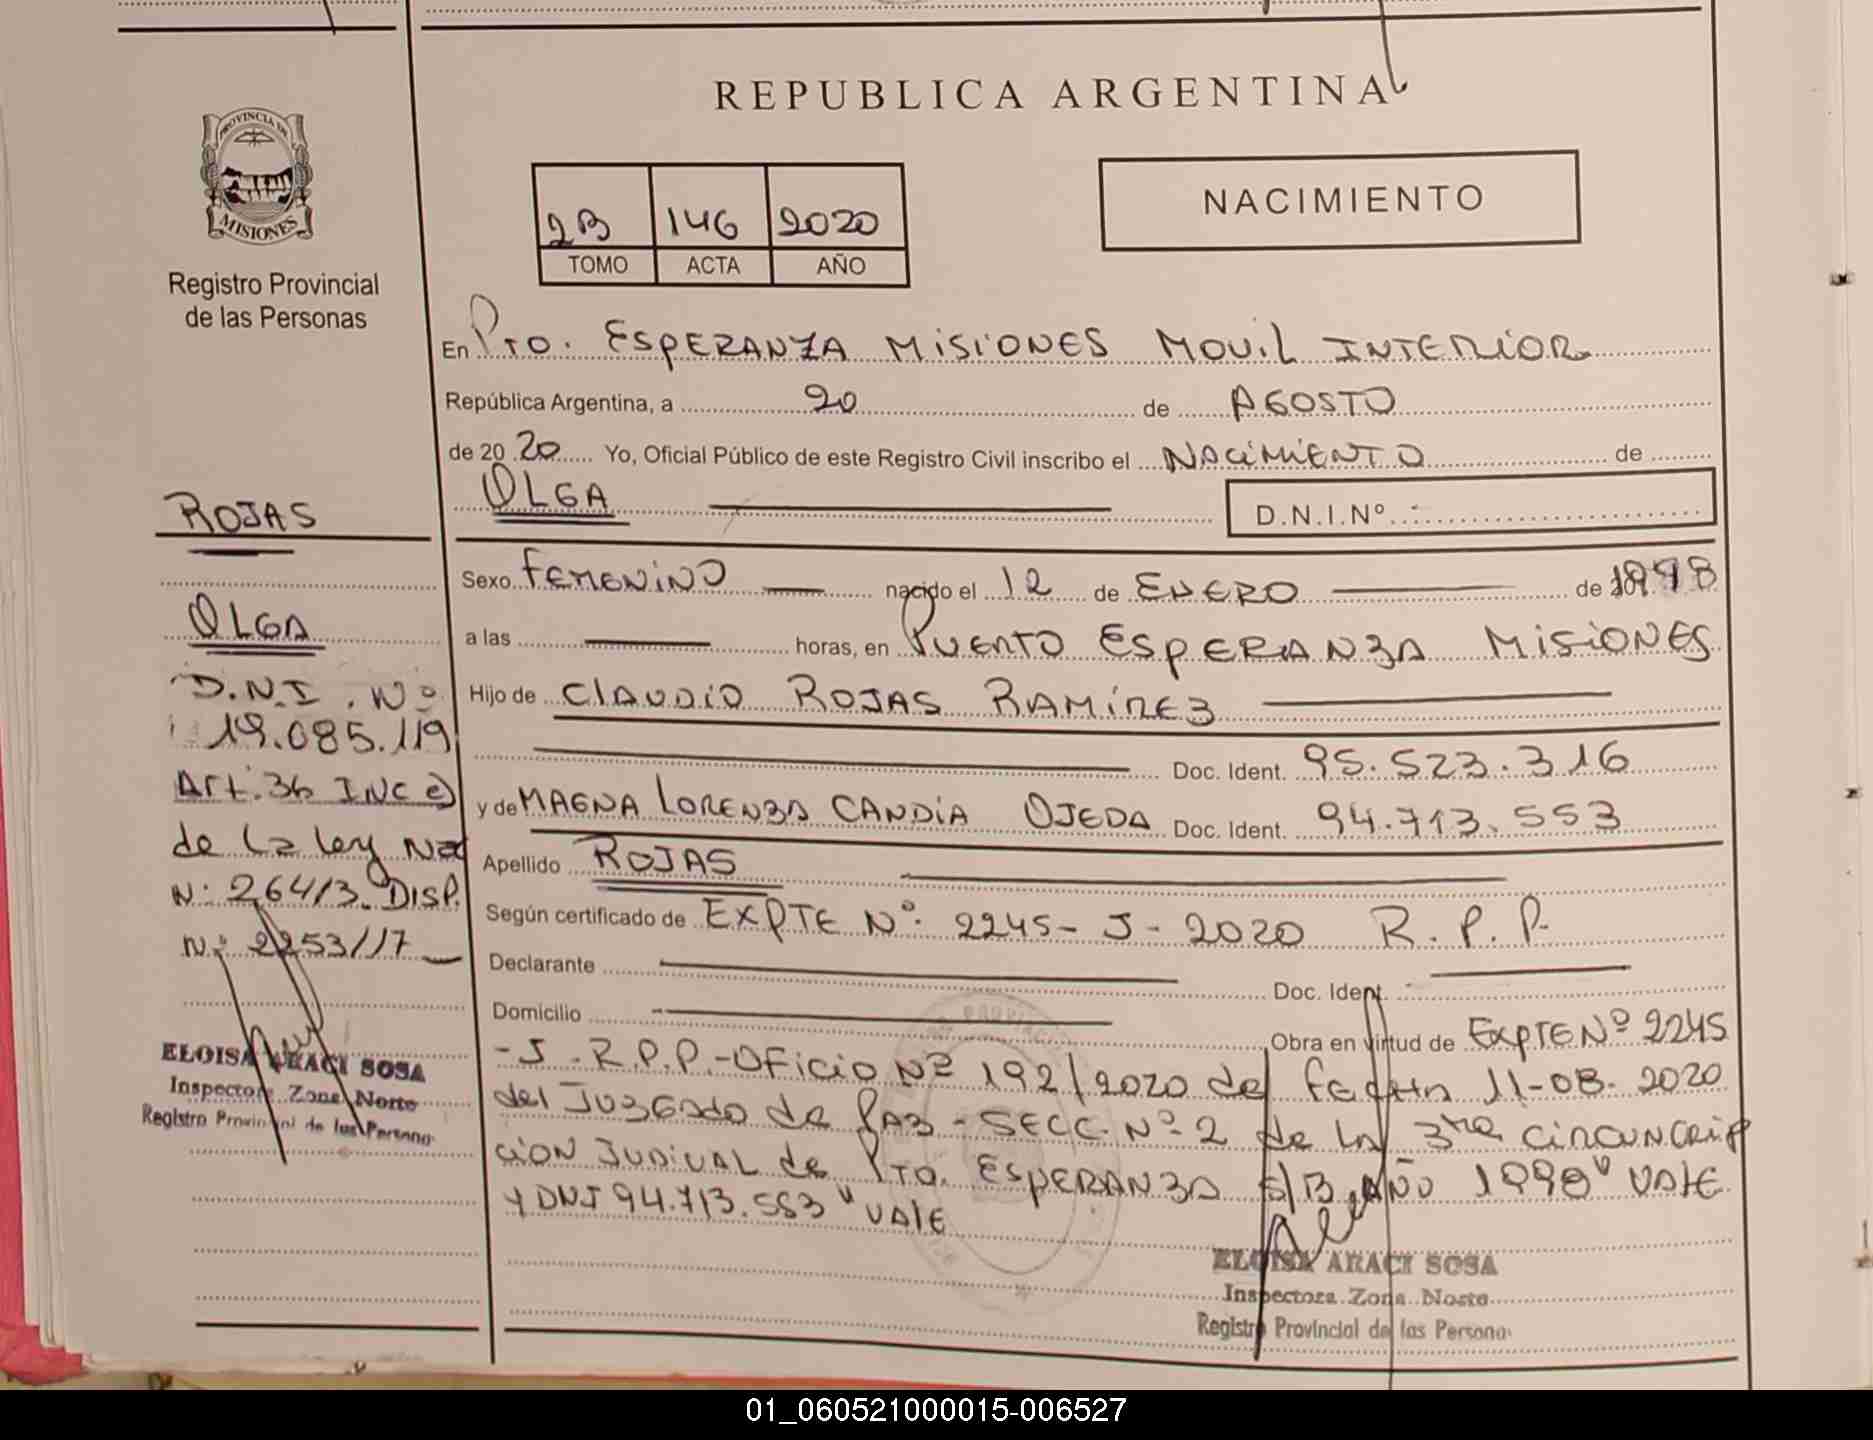 REPUBLICA ARGENTINA
PROVINCIA DE
MISIONES
Registro Provincial
de las Personas
2B 146 2020
TOMO ACTA AÑO
NACIMIENTO
En Pto. ESPERANZA MISIONES MOVIL INTERIOR
República Argentina, a 20 de AGOSTO
de 20 20 Yo, Oficial Público de este Registro Civil inscribo el NACIMIENTO de
OLGA D.N.I.Nº
Sexo FEMENINO nacido el 12 de ENERO de
a las horas, en PUERTO ESPERANZA MISIONES
Hijo de CLAUDIO ROJAS RAMÍREZ
Doc. Ident. 95.523.316
y de MAGNA LORENZA CANDIA OJEDA Doc. Ident. 94.713.553
Apellido ROJAS
Según certificado de EXPTE Nº 2245-J-2020 R.P.P.
Declarante
Doc. Ident.
Domicilio
Obra en virtud de EXPTE Nº 2245
-J-R.P.P.-OFICIO Nº 192/2020 de fecha 11-08-2020
del JUZGADO de PAZ-SECC. Nº 2 de la 3ra CIRCUNCRIP
CION JUDICIAL de PTO. ESPERANZA S/B AÑO 1998" VALE
Y DNI 94.713.553" VALE
ELOISA ARACI SOSA
Inspectora Zona Norte
Registro Provincial de las Personas
ROJAS
OLGA
D.N.I. Nº
19.085.119
Art. 36 INC c)
de La ley Nac
N: 26413. DISP.
N: 2253/17
ELOISA ARACI SOSA
Inspectora Zona Norte
Registro Provincial de las Personas
01_060521000015-006527